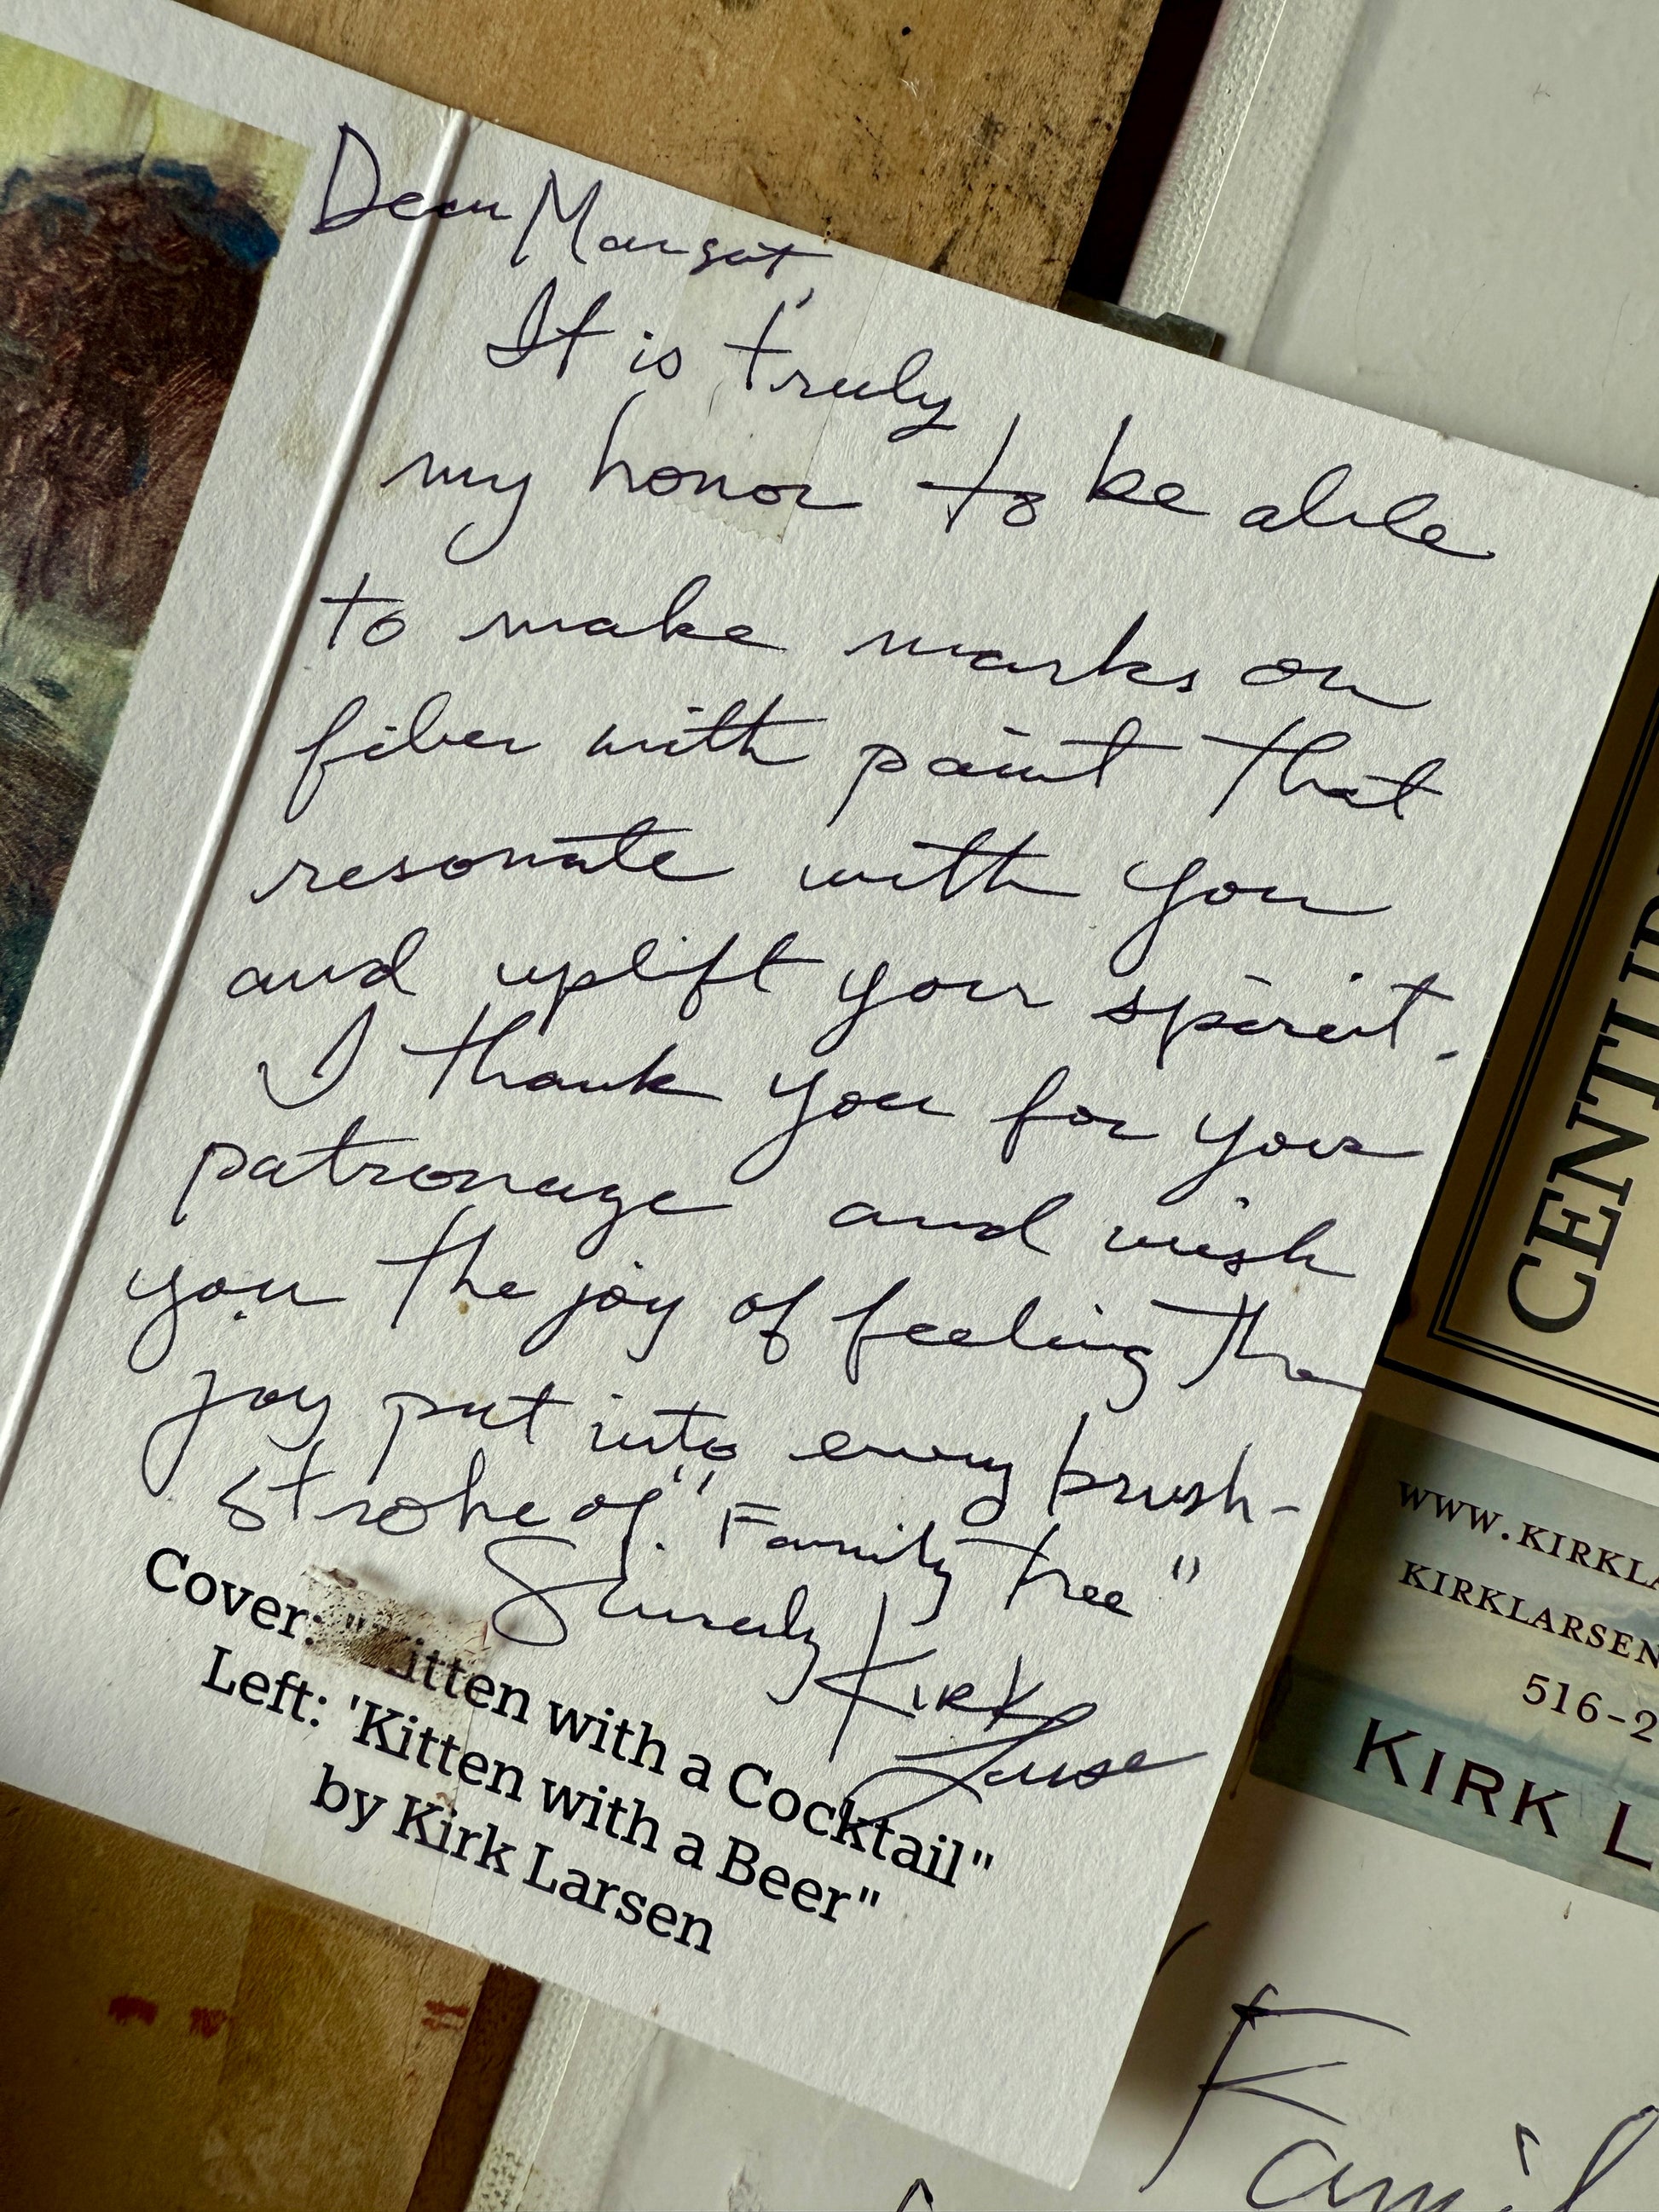 Dear Margot,
It is truly
my honor to be able
to make marks on
fiber with paint that
resonate with you
and uplift your spirit.
I thank you for your
patronage and wish
you the joy of feeling the
joy put into every brush-
stroke of "Family Tree"
Sincerely Kirk
Larsen
Cover: "Kitten with a Cocktail"
Left: 'Kitten with a Beer"
by Kirk Larsen
CENTUR
WWW.KIRKLA
KIRKLARSEN
516-2
KIRK L
Famil